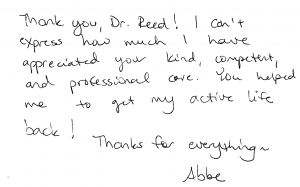 Thank you, Dr. Reed! I can't
express how much I have
appreciated your kind, competent,
and professional care. You helped
me to get my active life
back!
Thanks for everything~
Abbe